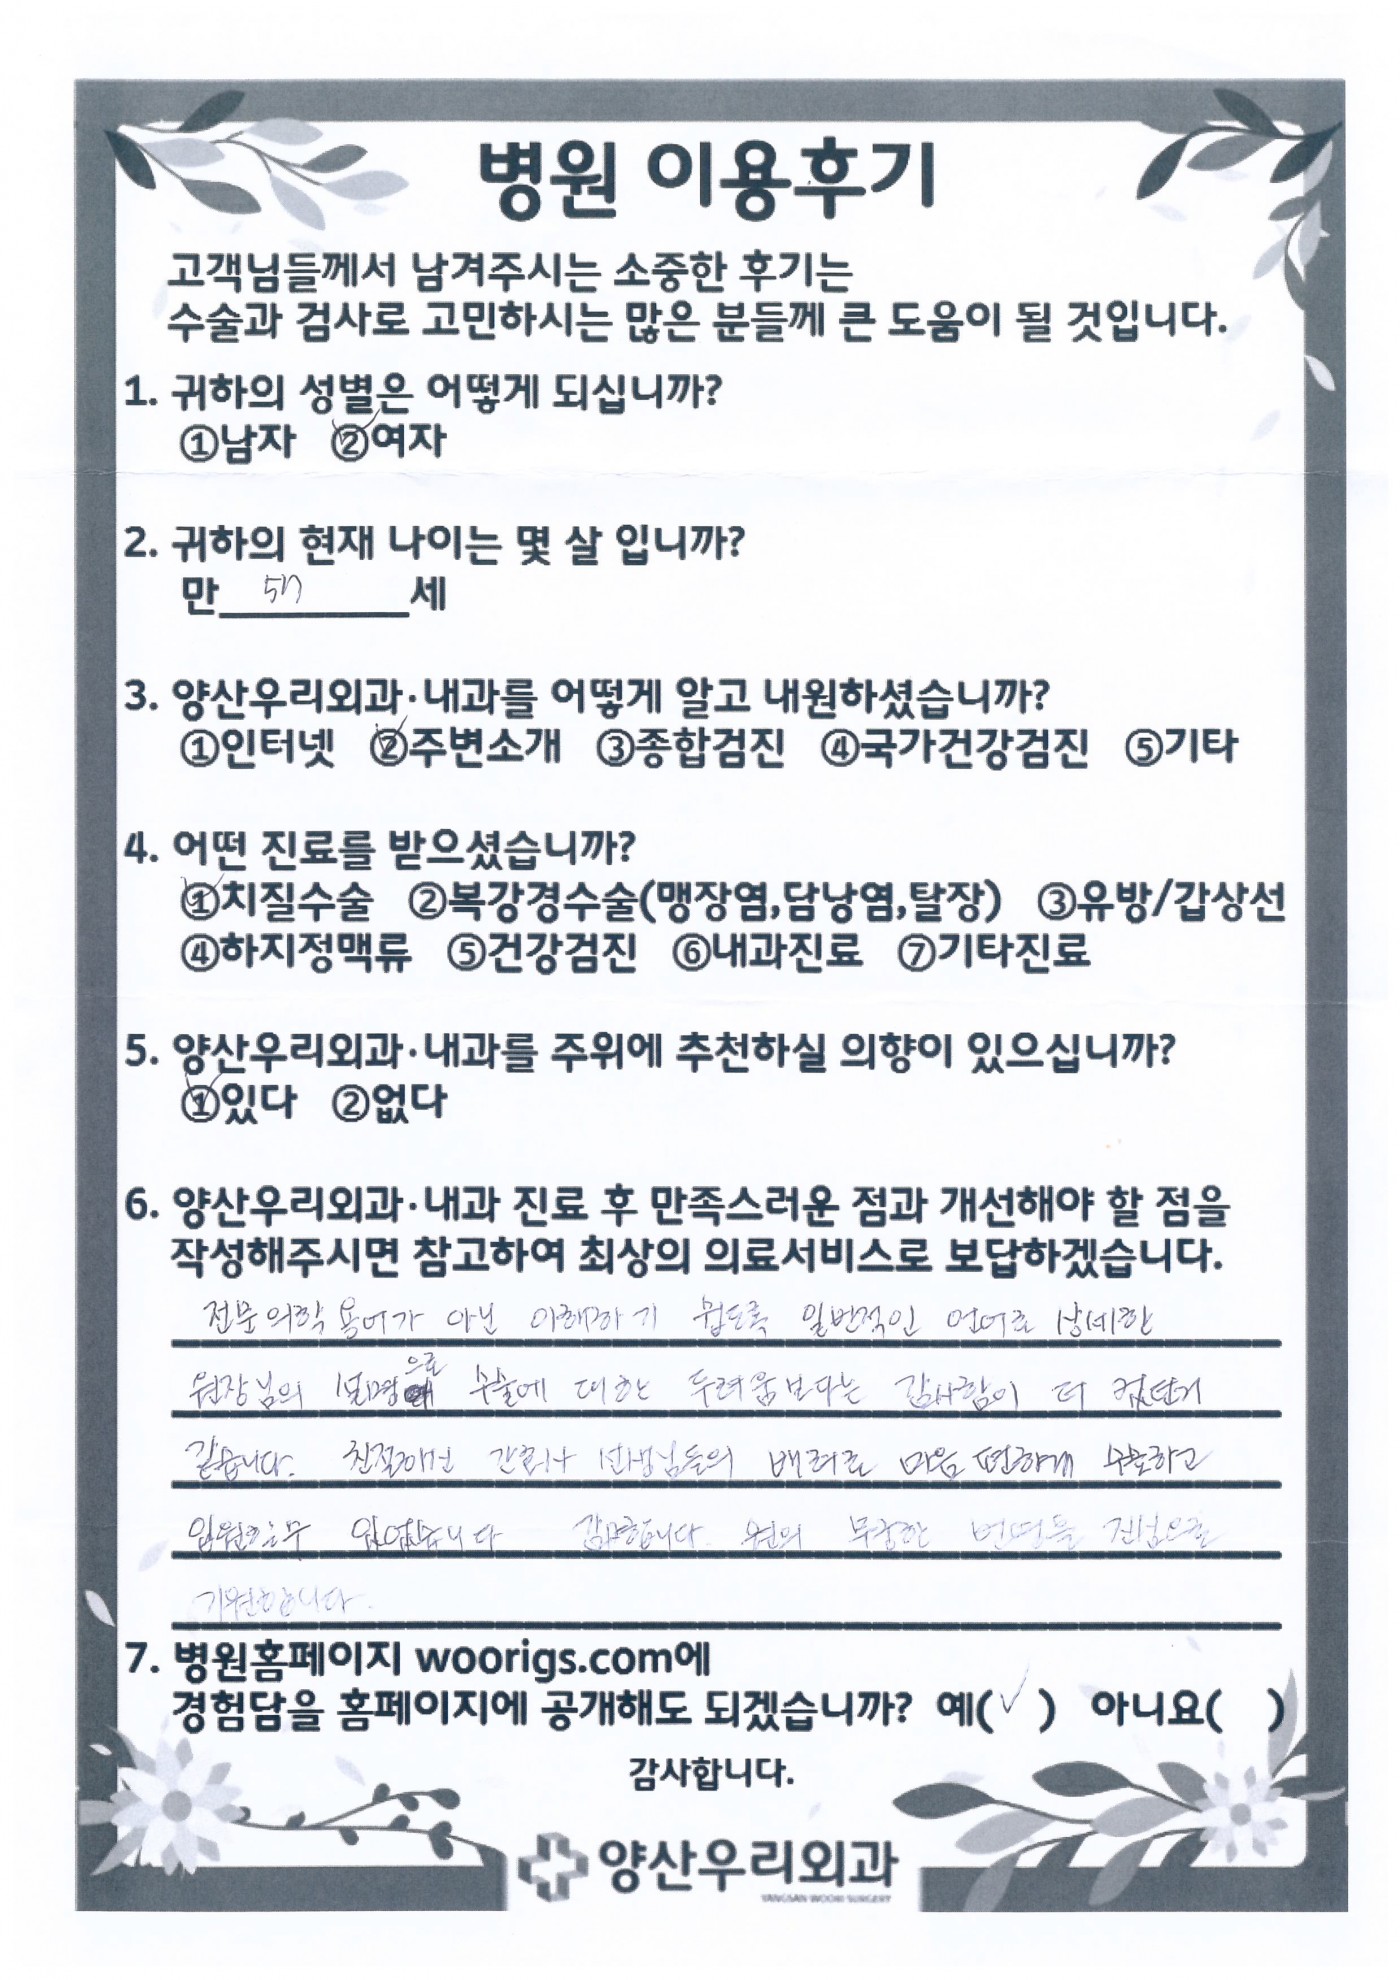 병원 이용후기
고객님들께서 남겨주시는 소중한 후기는
수술과 검사로 고민하시는 많은 분들께 큰 도움이 될 것입니다.
1. 귀하의 성별은 어떻게 되십니까?
①남자 ②여자
2. 귀하의 현재 나이는 몇 살 입니까?
만 57 세
3. 양산우리외과·내과를 어떻게 알고 내원하셨습니까?
①인터넷 ②주변소개 ③종합검진 ④국가건강검진 ⑤기타
4. 어떤 진료를 받으셨습니까?
①치질수술 ②복강경수술(맹장염,담낭염,탈장) ③유방/갑상선
④하지정맥류 ⑤건강검진 ⑥내과진료 ⑦기타진료
5. 양산우리외과·내과를 주위에 추천하실 의향이 있으십니까?
①있다 ②없다
6. 양산우리외과·내과 진료 후 만족스러운 점과 개선해야 할 점을
작성해주시면 참고하여 최상의 의료서비스로 보답하겠습니다.
전문의학 용어가 아닌 이해하기 쉽도록 일반적인 언어로 상세한
원장님의 설명으로 수술에 대한 두려움보다는 감사함이 더 컸던거
같습니다. 친절하신 간호사 선생님들의 배려로 마음 편하게 수술하고
입원할수 있었습니다 감사합니다. 무궁한 번영을 진심으로
기원합니다.
7. 병원홈페이지 woorigs.com에
경험담을 홈페이지에 공개해도 되겠습니까? 예(✓) 아니요( )
감사합니다.
양산우리외과
YANGSAN WOORI SURGERY